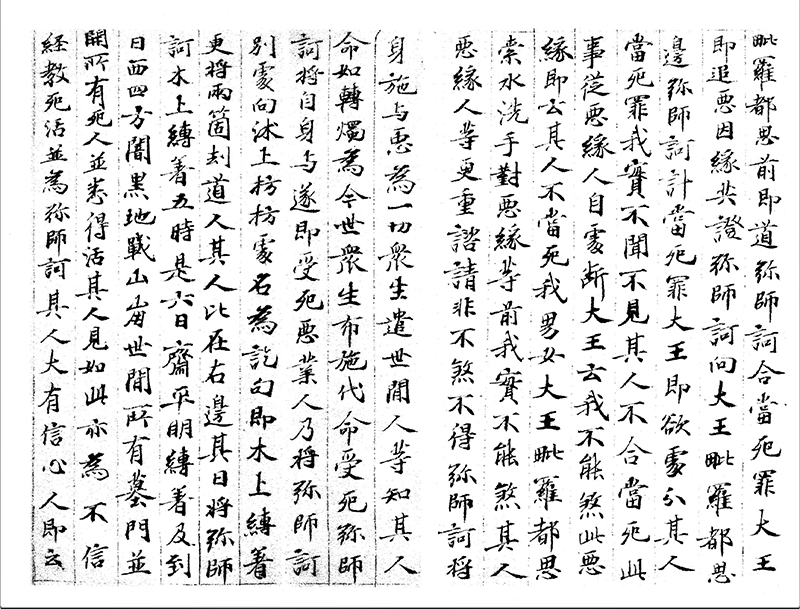 毗羅都思前即道弥師訶合當死罪大王
即追惡因緣共證弥師訶向大王毗羅都思
邊弥師訶計當死罪大王即欲處分其人
當死罪我實不聞不見其人不合當死此
事從惡緣人自處斷大王云我不能煞此惡
緣即云其人不當死我男女大王毗羅都思
索水洗手對惡緣等前我實不能煞其人
惡緣人等更重諮請非不煞不得弥師訶將
身施与惡為一切衆生遣世間人等知其人
命如轉燭為今世衆生布施代命受死弥師
訶將自身与遂即受死惡業人乃將弥師訶
別處向沐上枋枋處名為訖句即木上縛著
更將兩箇刦道人其人比在右邊其日將弥師
訶木上縛着五時是六日齋平明縛着及到
日西四方闇黑地戰山崩世間所有墓門並
開所有死人並悉得活其人見如此亦為不信
経教死活並為弥師訶其人大有信心人即云